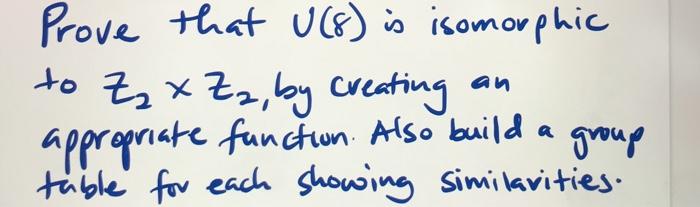 Prove that U(8) is isomorphic
to Z₂ × Z₂, by creating an
appropriate function. Also build a group
table for each showing similarities.